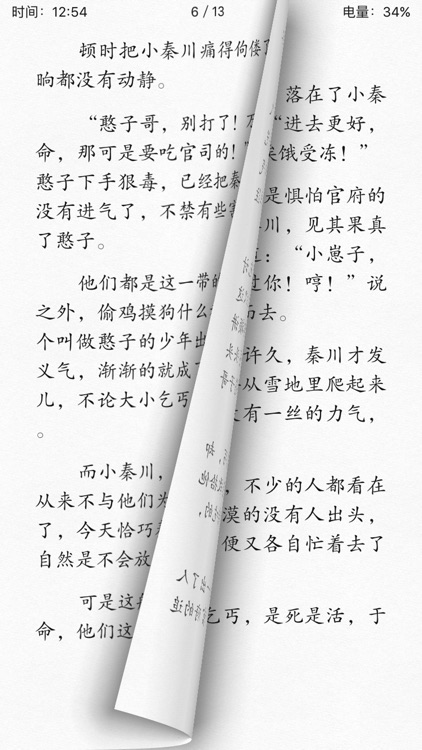 时间：12:54
6 / 13
电量：34%
顿时把小秦川痛得佝偻了
晌都没有动静。
“憨子哥，别打了！
命，那可是要吃官司的！”
憨子下手狠毒，已经把秦
没有进气了，不禁有些
了憨子。
他们都是这一带的
之外，偷鸡摸狗什么
个叫做憨子的少年出
义气，渐渐的就成
儿，不论大小乞丐
。
而小秦川，
从来不与他们为
了，今天恰巧
自然是不会放
可是这
命，他们这
落在了小秦
“进去更好，
挨饿受冻！”
是惧怕官府的
川，见其果真
：“小崽子，
过你！哼！”说
而去。
许久，秦川才发
从雪地里爬起来
有一丝的力气，
，不少的人都看在
漠的没有人出头，
便又各自忙着去了
乞丐，是死是活，于